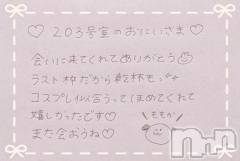 ♡ 203号室のおにいさま ♡
会いに来てくれてありがとう
ラスト枠だから乾杯も
コスプレ似合うってほめてくれて
嬉しかったです♡
また会おうね♡
ももか